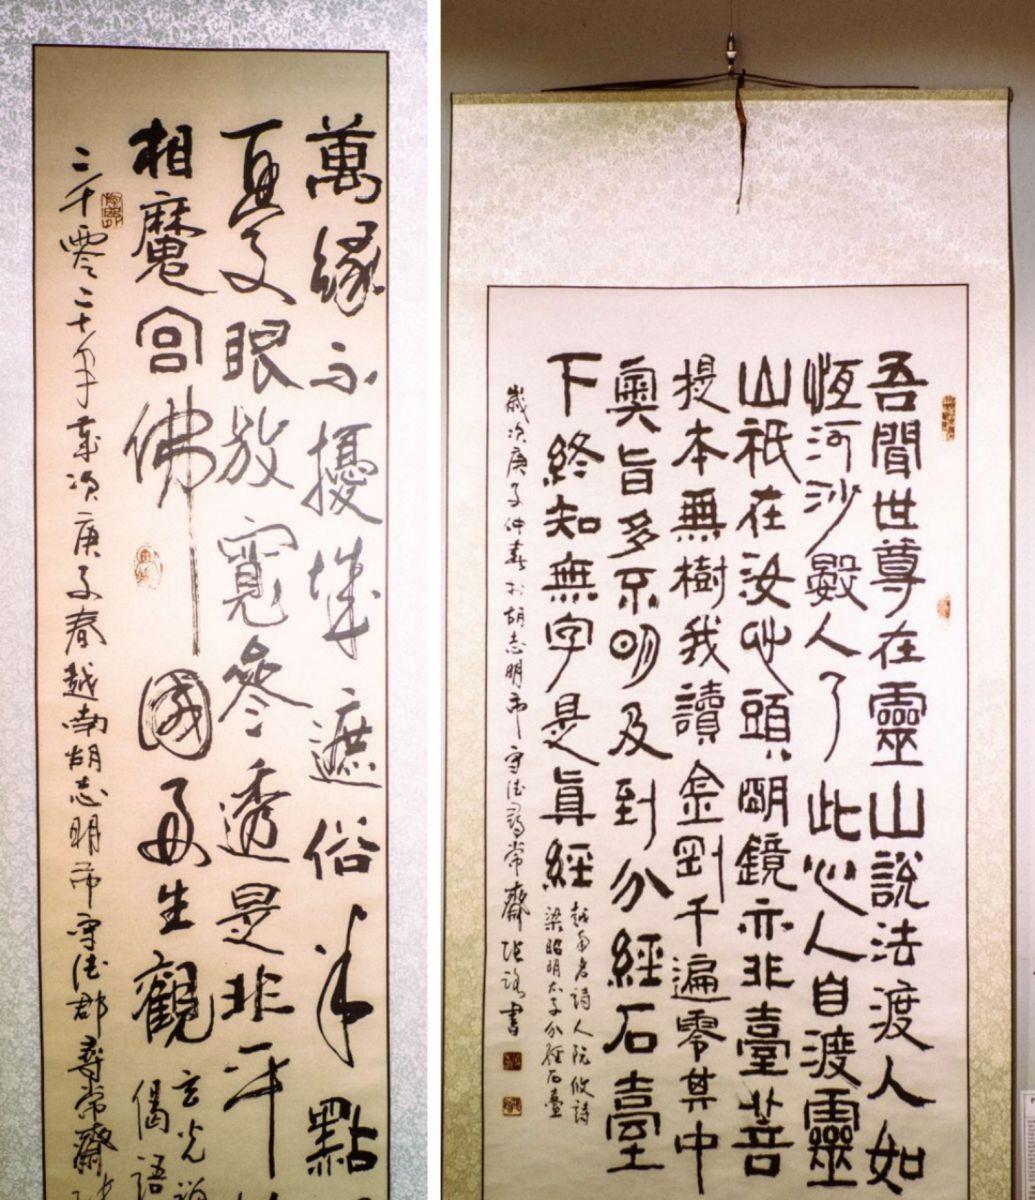 萬緣不擾城遮俗半點
憂眼放寬參透是非平
相魔宮佛國好生觀
玄光禪
偈語
二千零二十年歲次庚子春越南胡志明市守德郡尋常齋
吾聞世尊在靈山說法渡人如
恆河沙數人了此心人自渡靈
山祇在汝心頭明鏡亦非臺菩
提本無樹我讀金剛千遍零其中
奧旨多不明及到分經石臺
下終知無字是眞經
越南名詩人阮攸詩
梁昭明太子分經石臺
歲次庚子仲春於胡志明市守德尋常齋 書